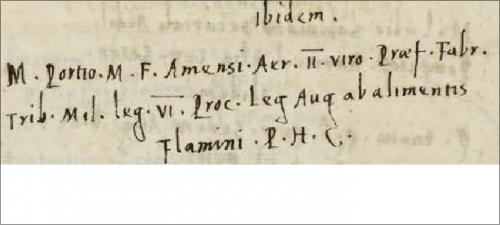 ibidem.
M. Portio. M. F. Amensi. Aer. II. viro. Præf. Fabr.
Trib. Mil. leg. VI. Proc. Leg Aug ab alimentis
Flamini. P. H. C.